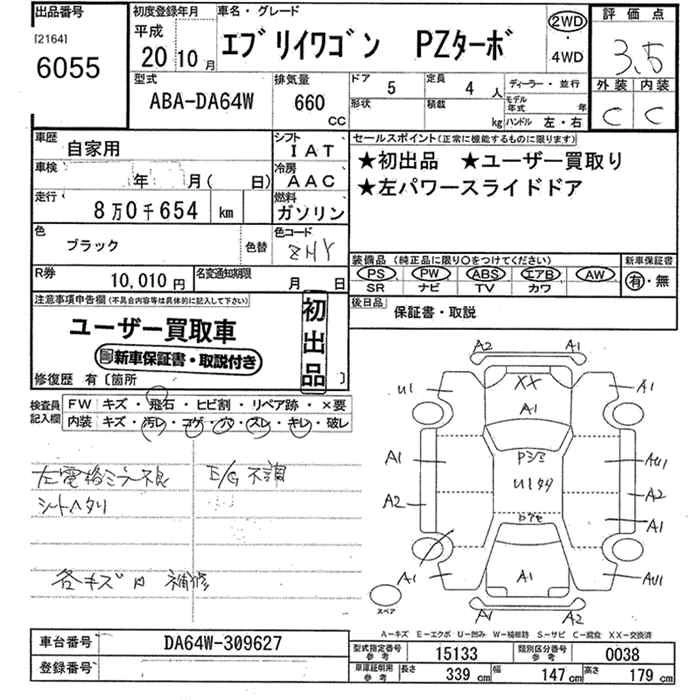 出品番号
[2164]
6055
初度登録年月
平成
20 10月
車名・グレード
エブリイワゴン PZターボ
2WD
・
4WD
評価点
3.5
外装 内装
C C
型式
ABA-DA64W
排気量
660
CC
ドア 5
定員 4 人
ディーラー・並行
形状
積載 kg
モデル年式 年
ハンドル 左・右
車歴 自家用
シフト IAT
車検 年 月( 日)
冷房 AAC
走行 8万0千654 km
燃料 ガソリン
色 ブラック
色替
色コード ZHY
R券 10,010円
名変通知期限 月 日
セールスポイント(正常に機能するものに限ります)
★初出品 ★ユーザー買取り
★左パワースライドドア
装備品 (純正品に限り○をつけてください)
PS PW ABS エアB AW
SR ナビ TV カワ
新車保証書
有・無
後日品 保証書・取説
注意事項申告欄(不具合内容等は具体的に記入して下さい)
ユーザー買取車
新車保証書・取説付き
初出品
修復歴 有〔箇所 〕
検査員記入欄
FW キズ・飛石・ヒビ割・リペア跡・×要
内装 キズ・汚レ・コゲ・穴・スレ・キレ・破レ
左電格ミラー不良 E/G不調
シートヘタリ
各キズ凹 補修
A2 A1
U1 XX A1
A1
A1 AU1
U1
A2 A2
A1
A1 A1 AU1
スペア
A1 A2
A－キズ E－エクボ U－凹み W－補修跡 S－サビ C－腐食 XX－交換済
車台番号 DA64W-309627
登録番号
型式指定番号 参考 15133
類別区分番号 参考 0038
車庫証明用 参考 長さ 339 cm 幅 147 cm 高さ 179 cm